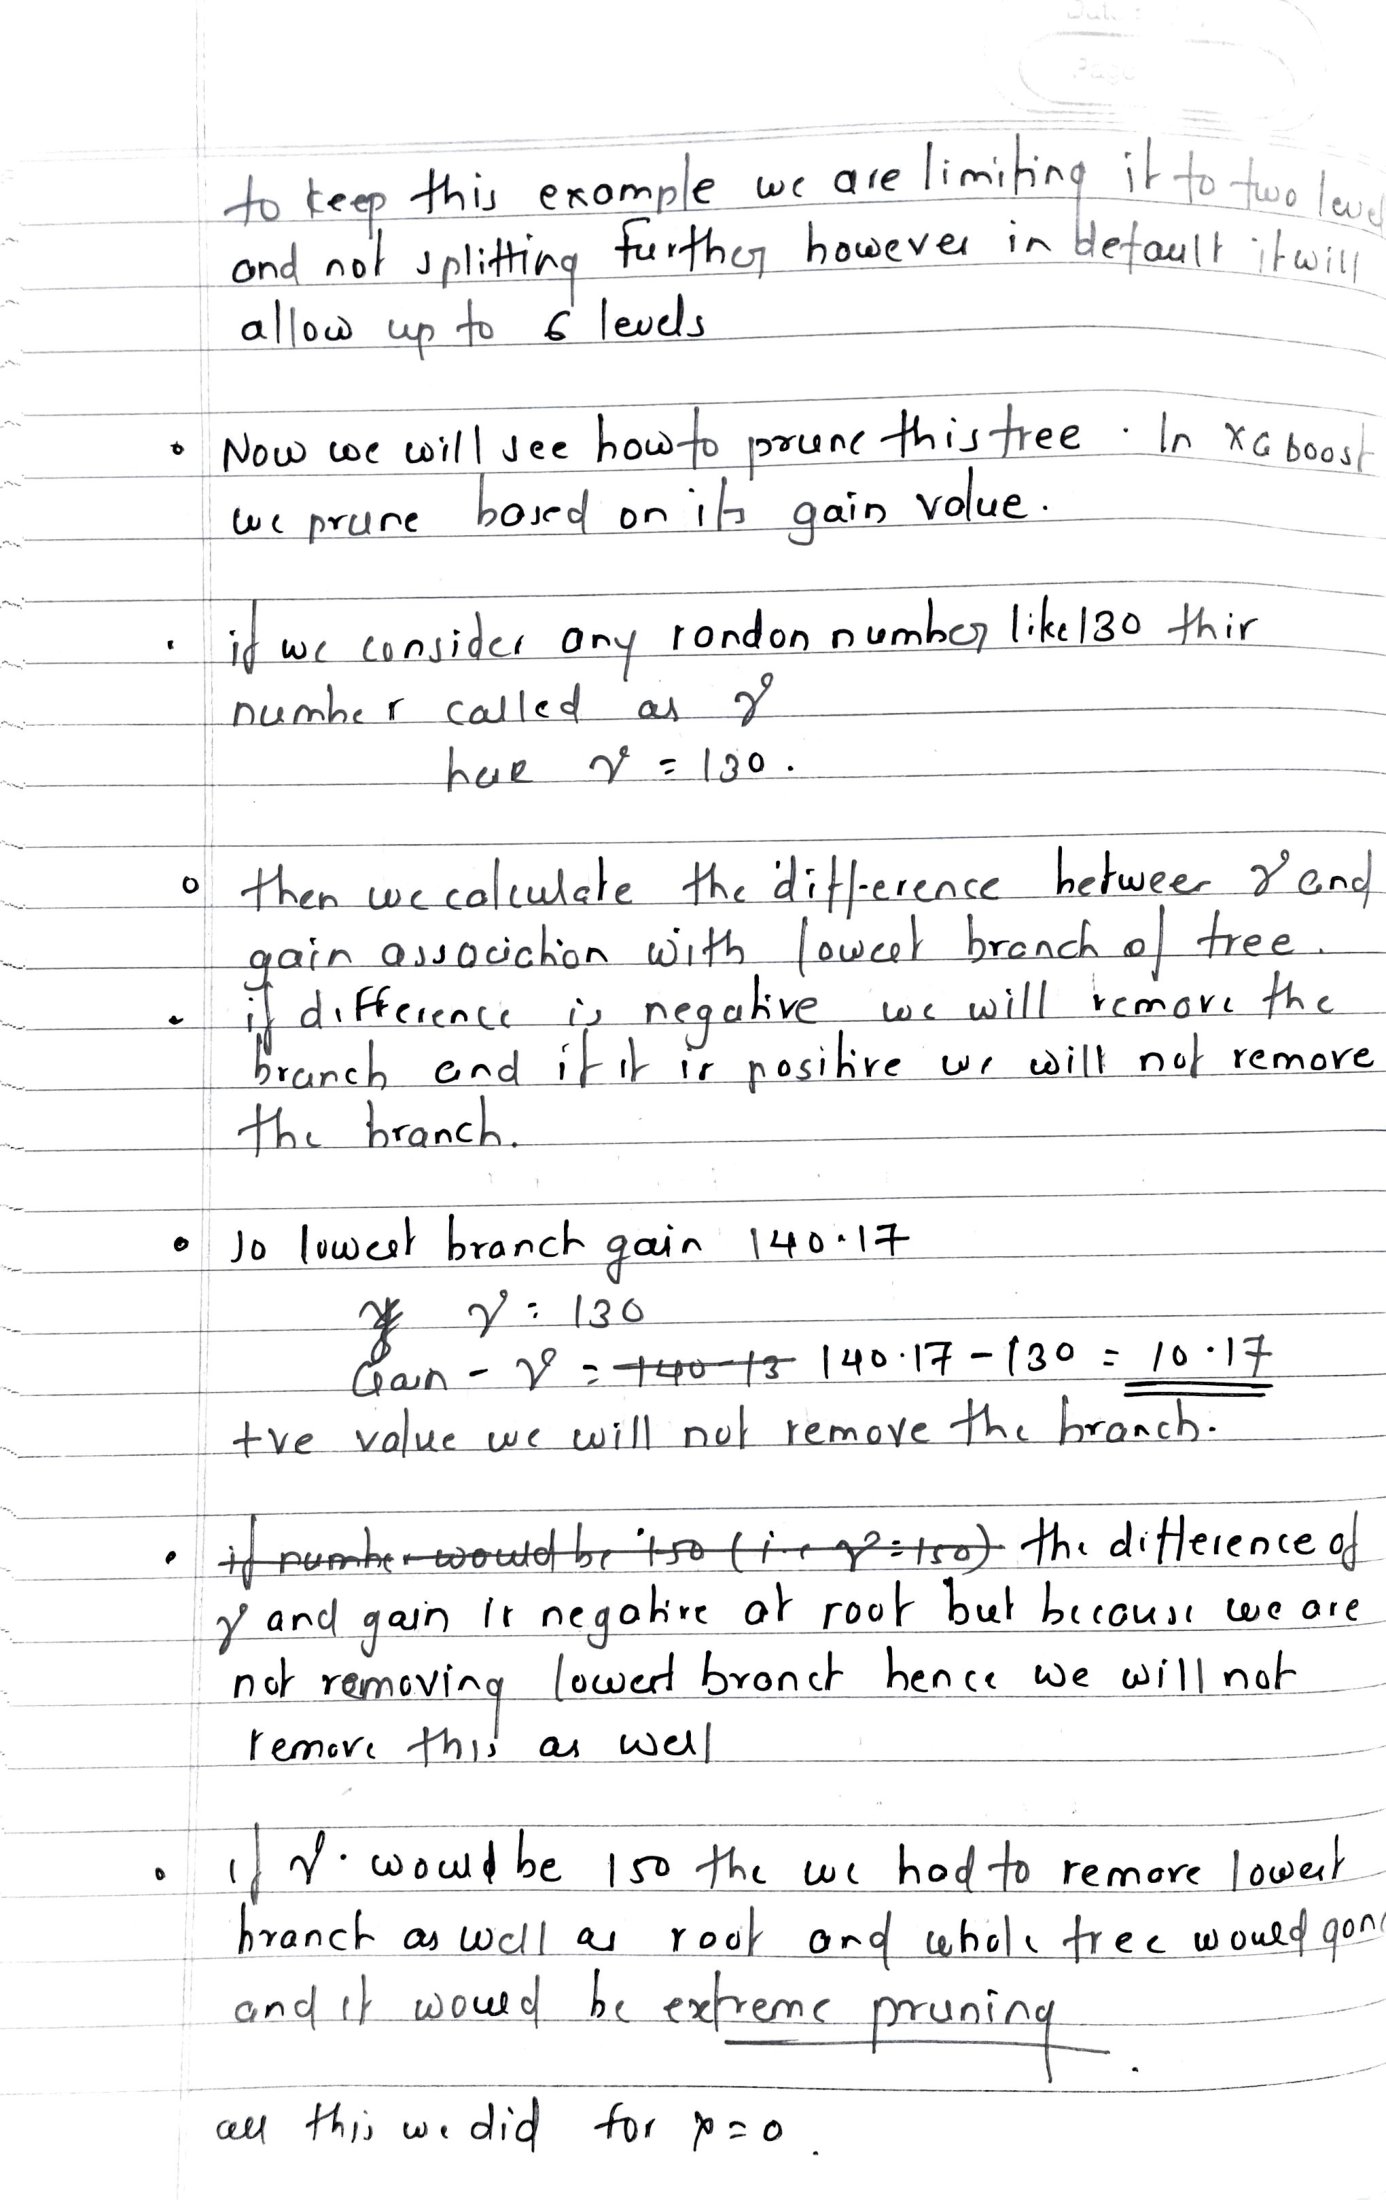 to keep this example we are limiting it to two level
and not splitting further however in default it will
allow up to 6 levels
• Now we will see how to prune this tree. In XG boost
we prune based on its gain value.
• if we consider any rondon number like 130 this
number called as γ
here γ = 130.
• then we calculate the difference between γ and
gain association with lowest branch of tree.
• if difference is negative we will remove the
branch and if it is positive we will not remove
the branch.
• so lowest branch gain 140.17
γ = 130
Gain - γ = 140-13 140.17 - 130 = 10.17
+ve value we will not remove the branch.
• if number would be 150 (i.e γ=150) the difference of
γ and gain is negative at root but because we are
not removing lowest branch hence we will not
remove this as well
• if γ. would be 150 the we had to remove lowest
branch as well as root and whole tree would gone
and it would be extreme pruning.
all this we did for λ=0.